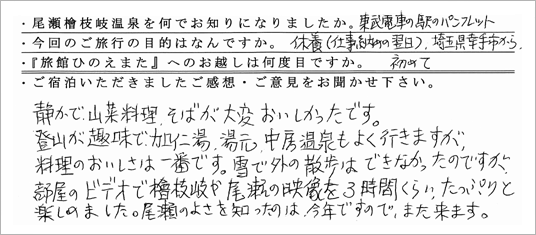 ・尾瀬檜枝岐温泉を何でお知りになりましたか。東武電車の駅のパンフレット
・今回のご旅行の目的はなんですか。 休養(仕事納めの翌日)、埼玉県幸手市から。
・『旅館ひのえまた』へのお越しは何度目ですか。 初めて
・ご宿泊いただきましたご感想・ご意見をお聞かせ下さい。
静かで、山菜料理、そばが大変おいしかったです。
登山が趣味で加仁湯、湯元、中房温泉もよく行きますが、
料理のおいしさは一番です。雪で外の散歩はできなかったのですが、
部屋のビデオで檜枝岐や尾瀬の映像を3時間くらい、たっぷりと
楽しめました。尾瀬のよさを知ったのは、今年ですので、また来ます。